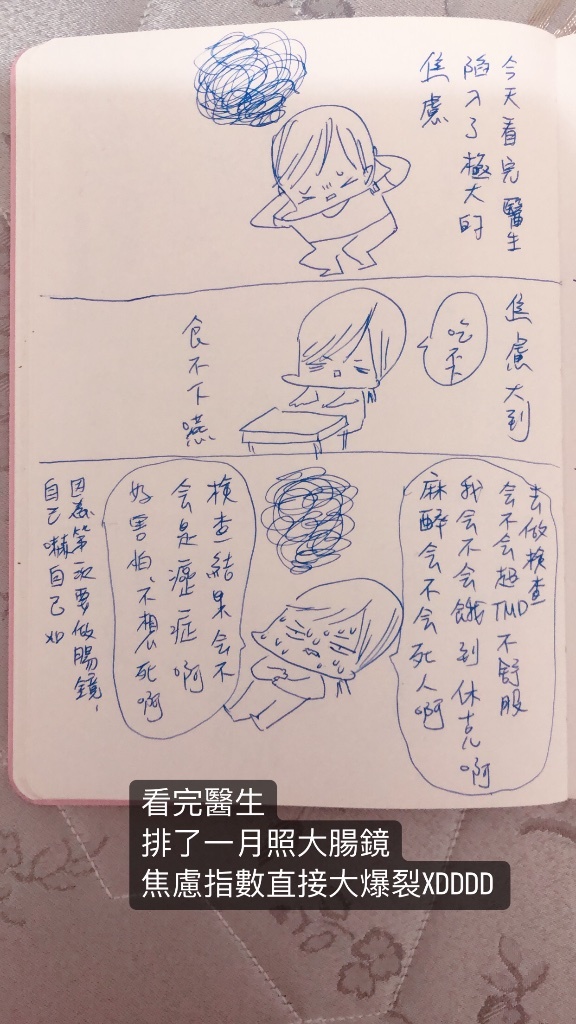 今天看完醫生
陷入了極大的
焦慮
焦慮大到
吃不下
食不下嚥
去做檢查
会不会超TMD不舒服
我会不会餓到休克啊
麻醉会不会死人啊
檢查結果会不
会是癌症啊
好害怕、不想死啊
因為第一次要做腸鏡,
自己嚇自己 XD
看完醫生
排了一月照大腸鏡
焦慮指數直接大爆裂XDDDD